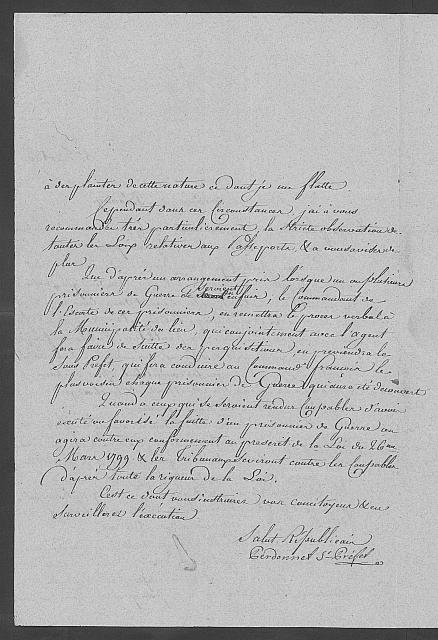 à des plaintes de cette nature ce dont je me flatte.
Cependant dans ces Circonstances, j'ai à vous
recommander très particulièrement, la Stricte observation de
toutes les Loix relatives aux Passeports, & à vous aviser de
plus.
Que d'après un arrangement pris lorsque un ou plusieurs
prisonniers de Guerre se seroient enfuis, le Commandant de
l'Escorte de ces prisonniers, en remettra le procès verbal à
la Municipalité du lieu, qui conjointement avec l'agent
fera faire de Suitte des perquisitions, en préviendra le
Sous Préfet, qui fera conduire au Command.t françois le
plus voisin chaque prisonnier de Guerre qui aura été découvert
Quand à ceux qui se seroient rendus Coupables d'avoir
excité ou favorisé la fuitte d'un prisonnier de Guerre on
agira contre eux conformément au prescrit de la Loi du 26me
Mars 1799 & les Tribunaux séviront contre les Coupables
d'après toute la rigueur de la Loi.
C'est ce dont vous instruirez vos concitoyens & en
surveillerez l'exécution
Salut Républicain
Perdonnet S. Préfet